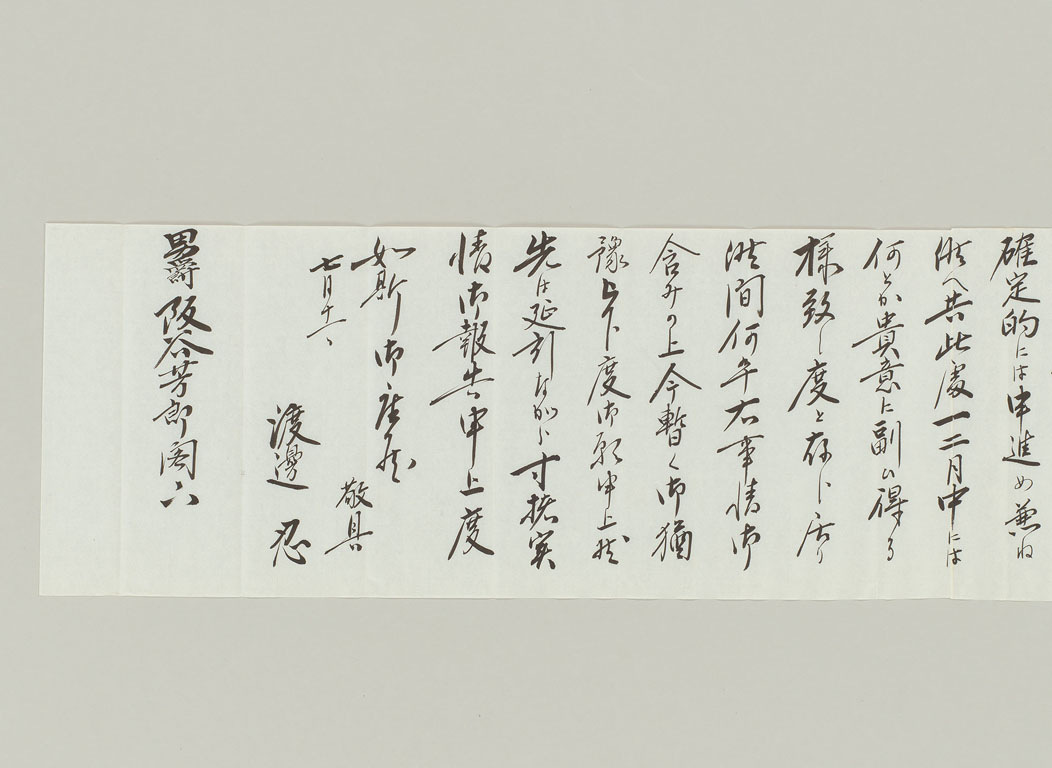 確定的には申進め兼ね
候へ共此処一二月中には
何とか貴意に副ひ得る
様致し度と存じ居り
候間何卒右事情御
含みの上今暫く御猶
豫被下度御願申上候
先は延引ながら寸楮実
情御報告申上度
如斯御座候
敬具
七月十一
渡邊 忍
男爵 阪谷芳郎閣下